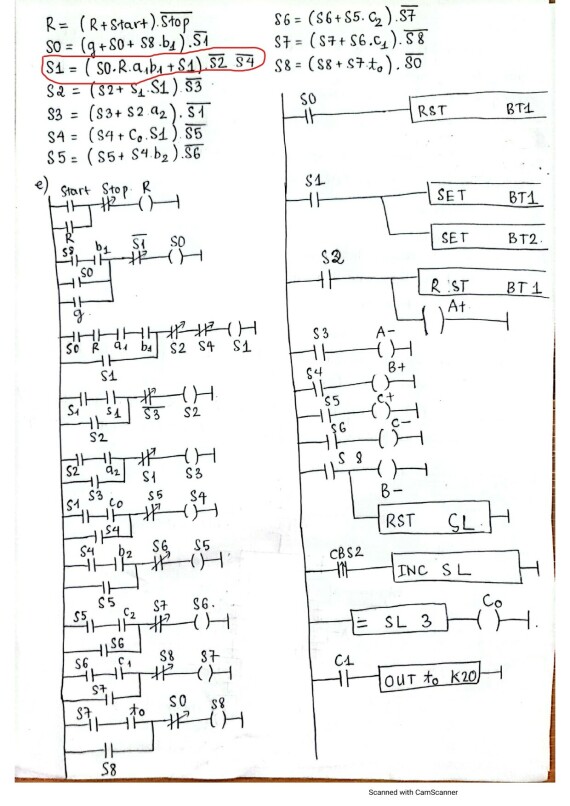 R = (R+Start).S̅t̅o̅p̅
S0 = (g+S0+S8.b₁).S̅1̅
S1 = (S0.R.a₁b₁+S1).S̅2̅ S̅4̅
S2 = (S2+s₁.S1).S̅3̅
S3 = (S3+S2.a₂).S̅1̅
S4 = (S4+C₀.S1).S̅5̅
S5 = (S5+S4.b₂).S̅6̅
S6 = (S6+S5.C₂).S̅7̅
S7 = (S7+S6.C₁).S̅8̅
S8 = (S8+S7.t₀).S̅0̅
e)
Start Stop R
R
S8 b₁ S̅1̅ S0
S0
g
S0 R a₁ b₁ S2 S4 S1
S1
S1 s1 S̅3̅ S2
S2
S2 a₂ S1 S3
S3
S1 C₀ S5 S4
S4
S4 b₂ S6 S5
S5
S5 C₂ S7 S6.
S6
S6 C₁ S8 S7
S7
S7 t₀ S0 S8
S8
S0
RST BT1
S1
SET BT1
SET BT2.
S2
RST BT1
A+
S3 A-
S4 B+
S5 C+
S6 C-
S8
B-
RST SL
CBS2
INC SL
= SL 3 C₀
C1
OUT t₀ K20
Scanned with CamScanner